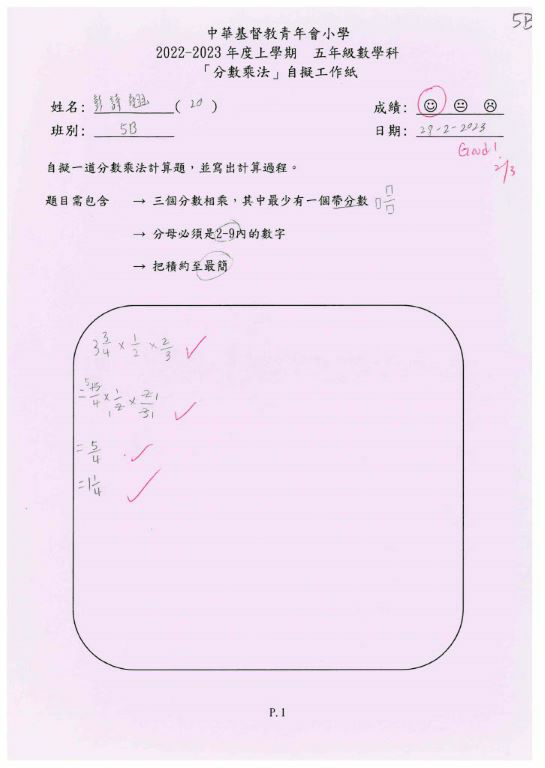 5B
中華基督教青年會小學
2022-2023 年度上學期 五年級數學科
「分數乘法」自擬工作紙
姓名: ( 20 )
成績: ☺ 😐 ☹
班別: 5B
日期: 29-2-2023
Good!
2/3
自擬一道分數乘法計算題，並寫出計算過程。
題目需包含 → 三個分數相乘，其中最少有一個帶分數
→ 分母必須是2-9內的數字
→ 把積約至最簡
3 3/4 × 1/2 × 2/3
= 15/4 5 × 1/2 1 × 2/3 1 1
= 5/4
= 1 1/4
P.1